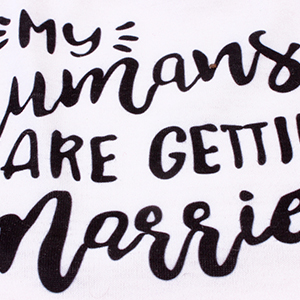 My
humans
ARE GETTI
Marrie